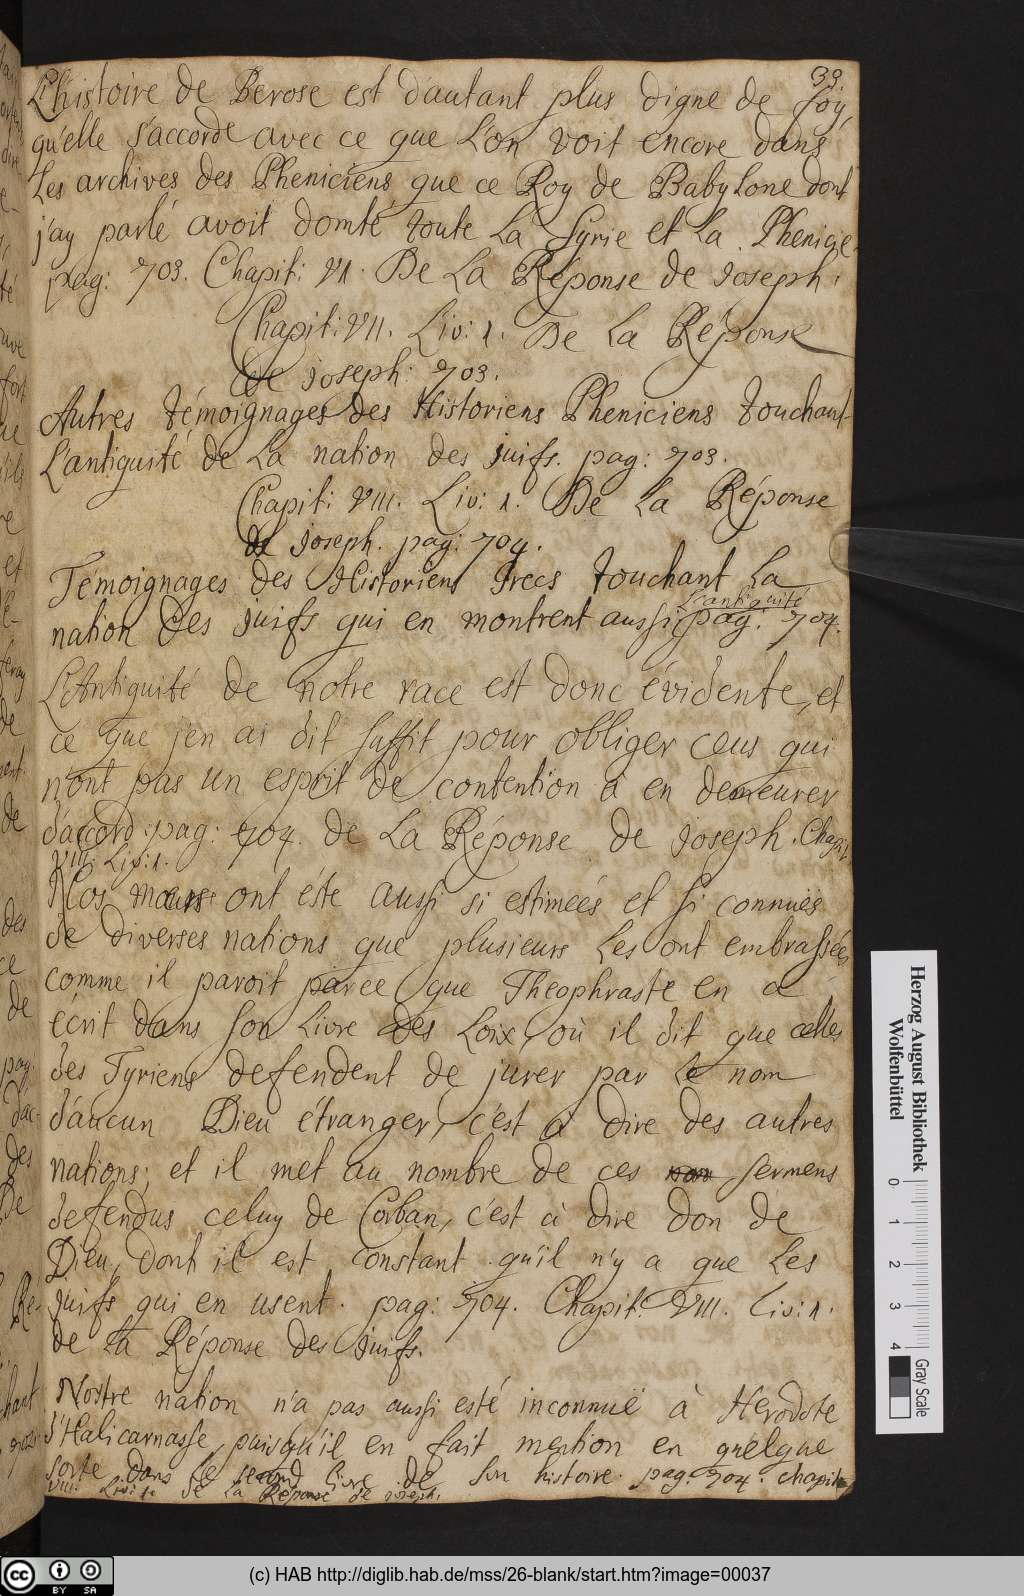 39.
L'histoire de Berose est d'autant plus digne de foy,
qu'elle s'accorde avec ce que L'on voit encore dans
Les archives des Pheniciens que ce Roy de Babylone dont
j'ay parlé avoit domté toute La Syrie et La Phenicie.
pag: 703. Chapit: VI. De La Réponse de Joseph:
Chapit: VII. Liv: 1. De La Réponse
de Joseph: 703.
Autres témoignages des Historiens Pheniciens touchant
L'antiquité de La nation des juifs. pag: 703.
Chapit: VIII. Liv: 1. De La Réponse
de Joseph. pag: 704.
Témoignages des Historiens Grecs touchant La
L'antiquité
nation des juifs qui en montrent aussi pag: 704.
L'Antiquité de notre race est donc évidente, et
ce que j'en ai dit suffit pour obliger ceus qui
n'ont pas un esprit de contention à en demeurer
d'accord. pag: 704. de La Réponse de Joseph. Chapit
VIII. Liv: 1.
Nos mœurs ont éste aussi si estimeés et si connuës
de diverses nations que plusieurs Les ont embrassées
comme il paroit parce que Theophraste en a
écrit dans son Livre des Loix, où il dit que celles
des Tyriens defendent de jurer par Le nom
d'aucun Dieu étranger, c'est à dire des autres
nations; et il met au nombre de ces sermens
defendus celuy de Corban, c'est à dire don de
Dieu, dont il est constant qu'il n'y a que Les
juifs qui en usent. pag: 704. Chapit: VIII. Liv: 1.
de La Réponse des Juifs.
Nostre nation n'a pas aussi esté inconnuë à Herodote
d'Halicarnasse, puisqu'il en fait mention en quelque
sorte dans le second livre de son histoire. pag. 704. chapit
VIII. Liv: 1. de La Réponse de Joseph.
Herzog August Bibliothek
Wolfenbüttel
0 1 2 3 4
Gray Scale
(c) HAB http://diglib.hab.de/mss/26-blank/start.htm?image=00037
cc BY SA